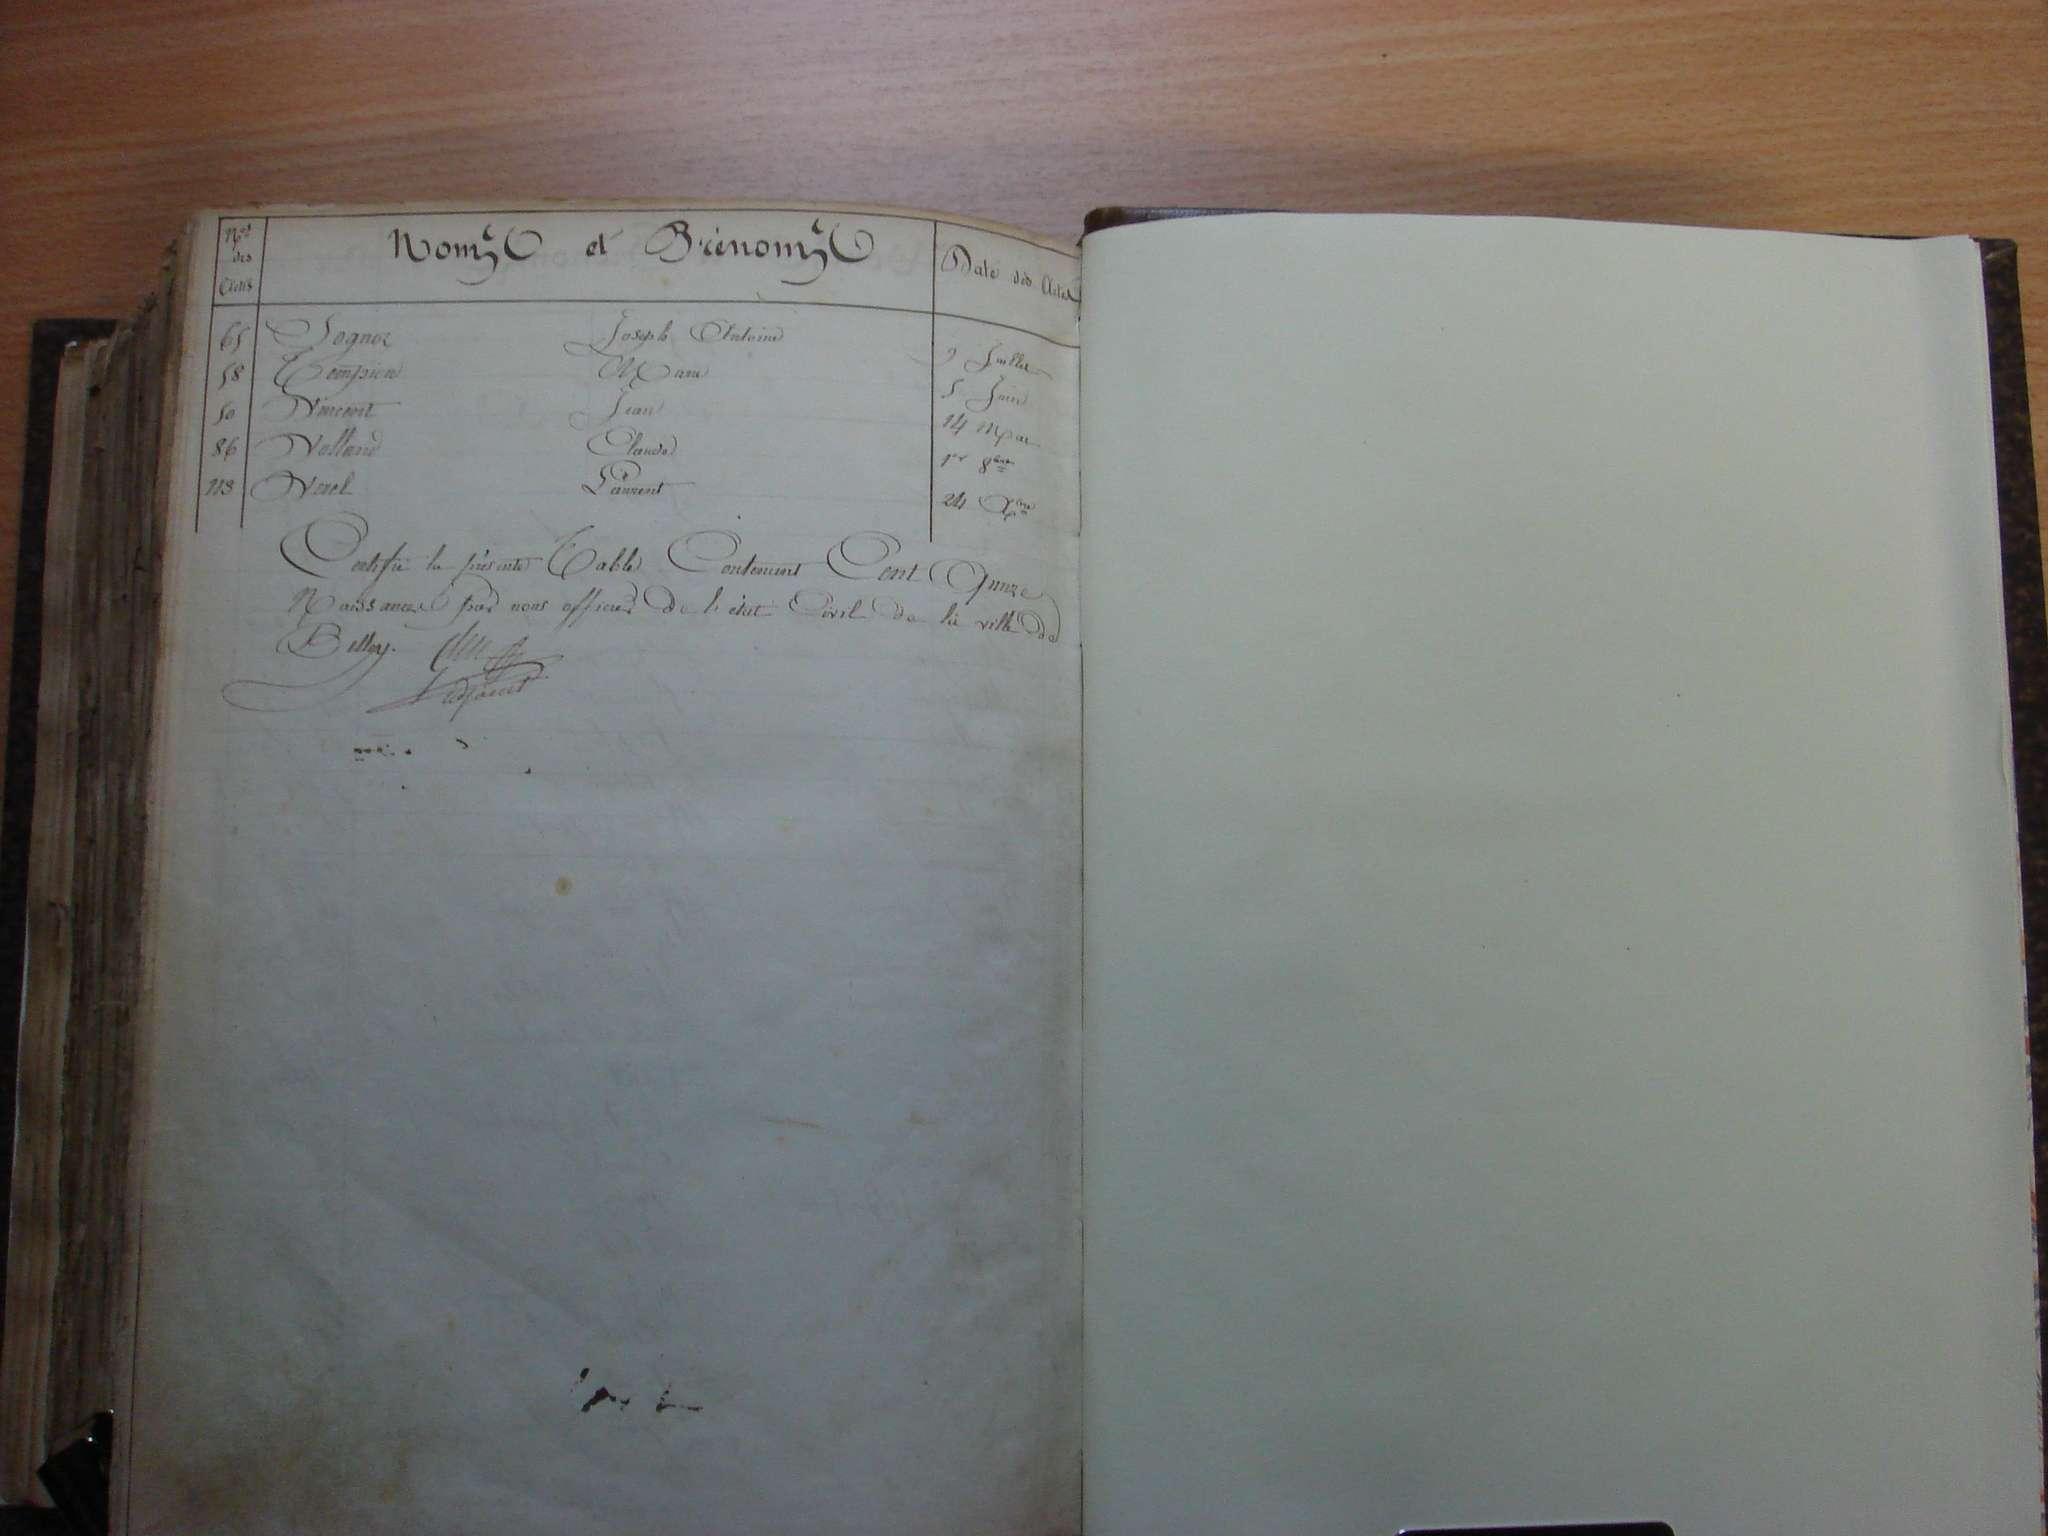 Nos des Actes Noms et Prénoms Date des Actes
65 Sognoz Joseph Antoine 9 Juillet
58 Tempion Marie 5 Juin
50 Vincent Jean 14 Mai
86 Volland Claude 1er 8bre
113 Verel Laurent 24 Xbre
Certifié la présente Table Contenant Cent Quinze
Naissances par nous officier de l'état Civil de la ville de
Belley.
adjoint